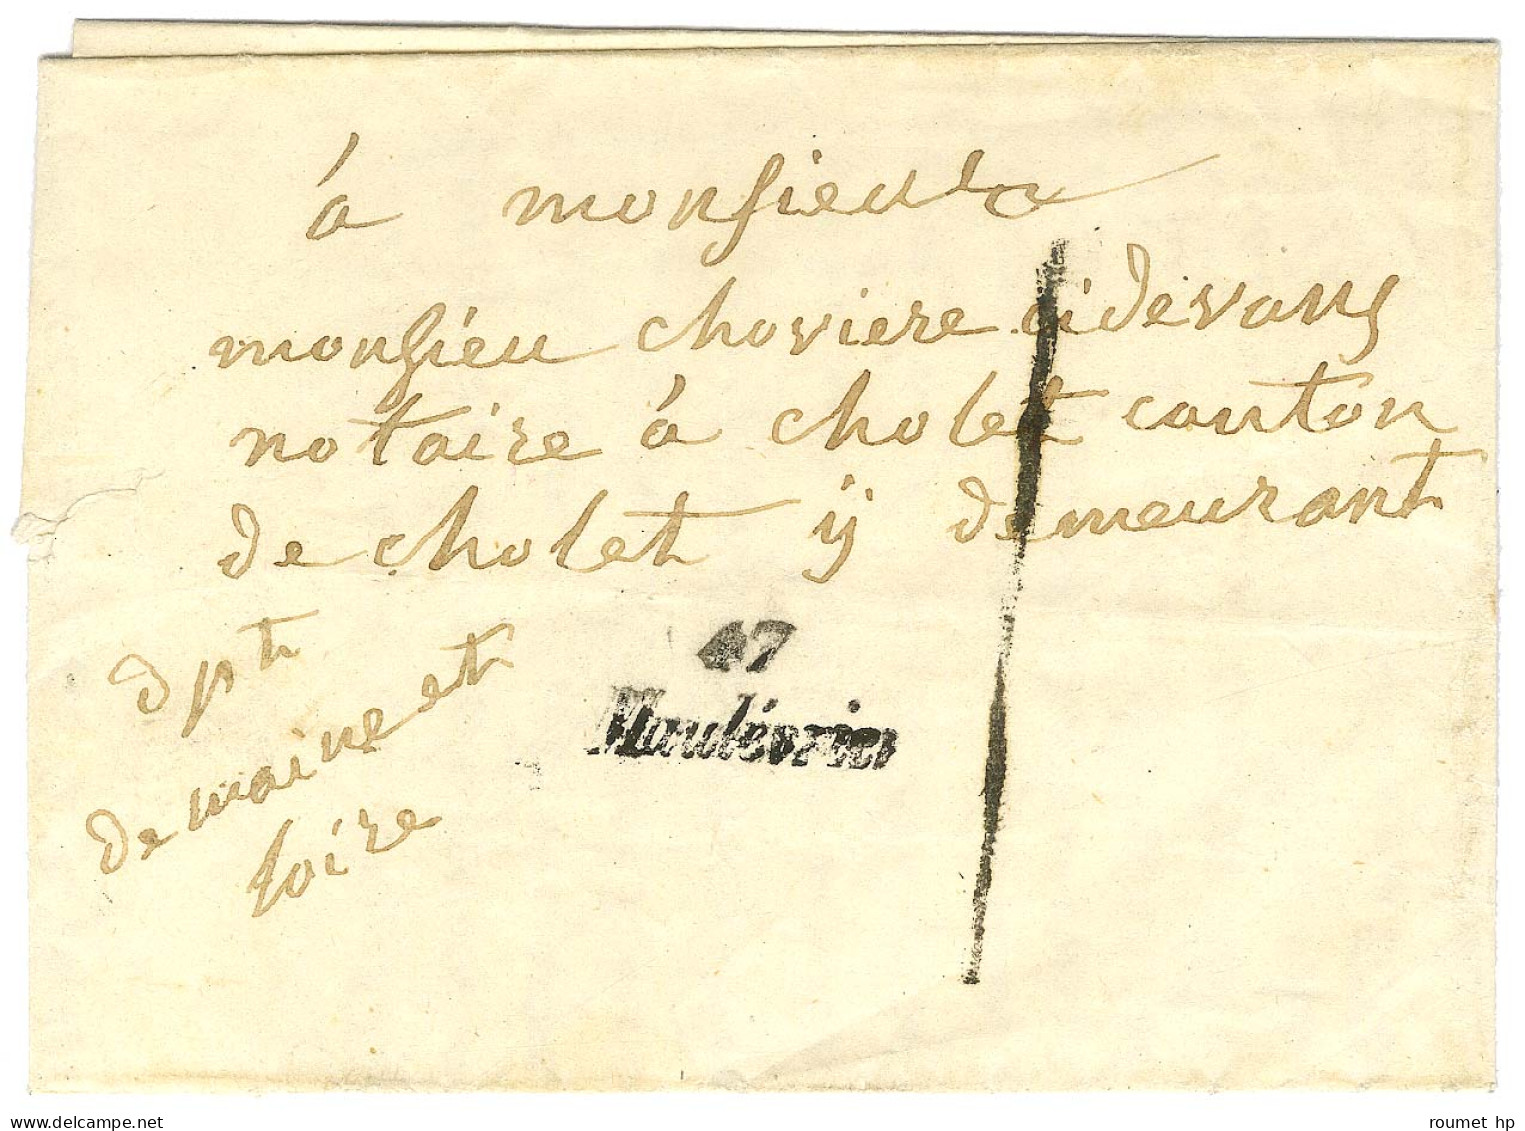 á monsieur
monsieu choviere cidevans
notaire á cholet canton
de cholet ÿ demeurant
dpt
de maine et
loire
47
Maulévrier
roumet hp